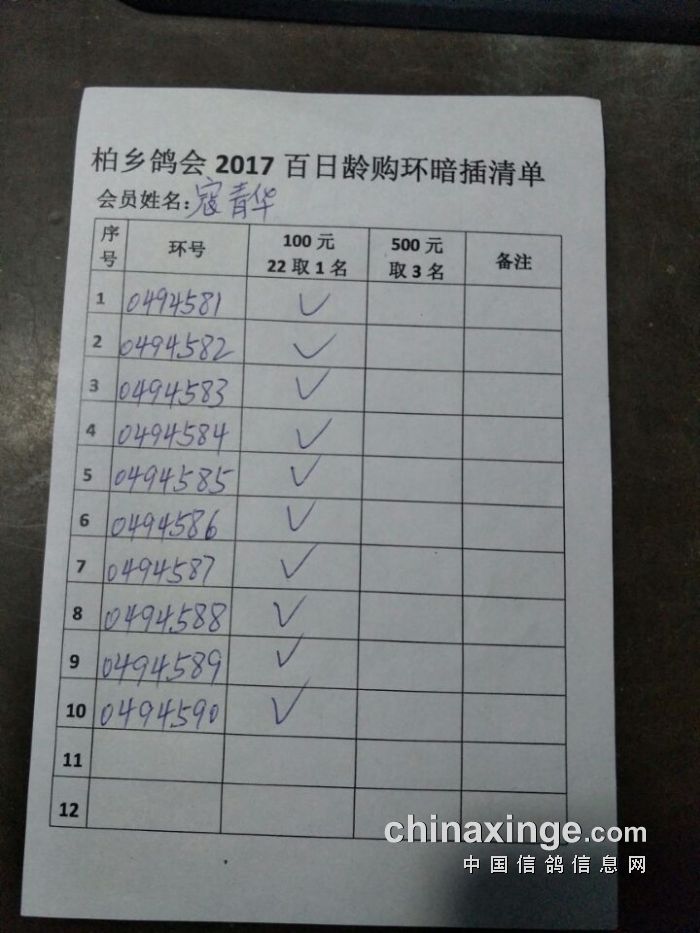 柏乡鸽会 2017 百日龄购环暗插清单
会员姓名：寇青华
序号 环号 100 元 22 取 1 名 500 元 取 3 名 备注
1 0494581 ✓
2 0494582 ✓
3 0494583 ✓
4 0494584 ✓
5 0494585 ✓
6 0494586 ✓
7 0494587 ✓
8 0494588 ✓
9 0494589 ✓
10 0494590 ✓
11
12
chinaxinge.com
中国信鸽信息网